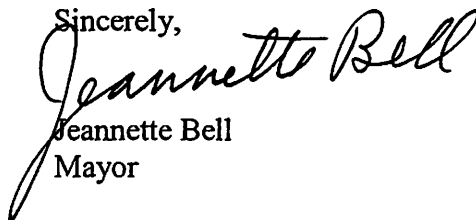 Sincerely,
Jeannette Bell
Jeannette Bell
Mayor